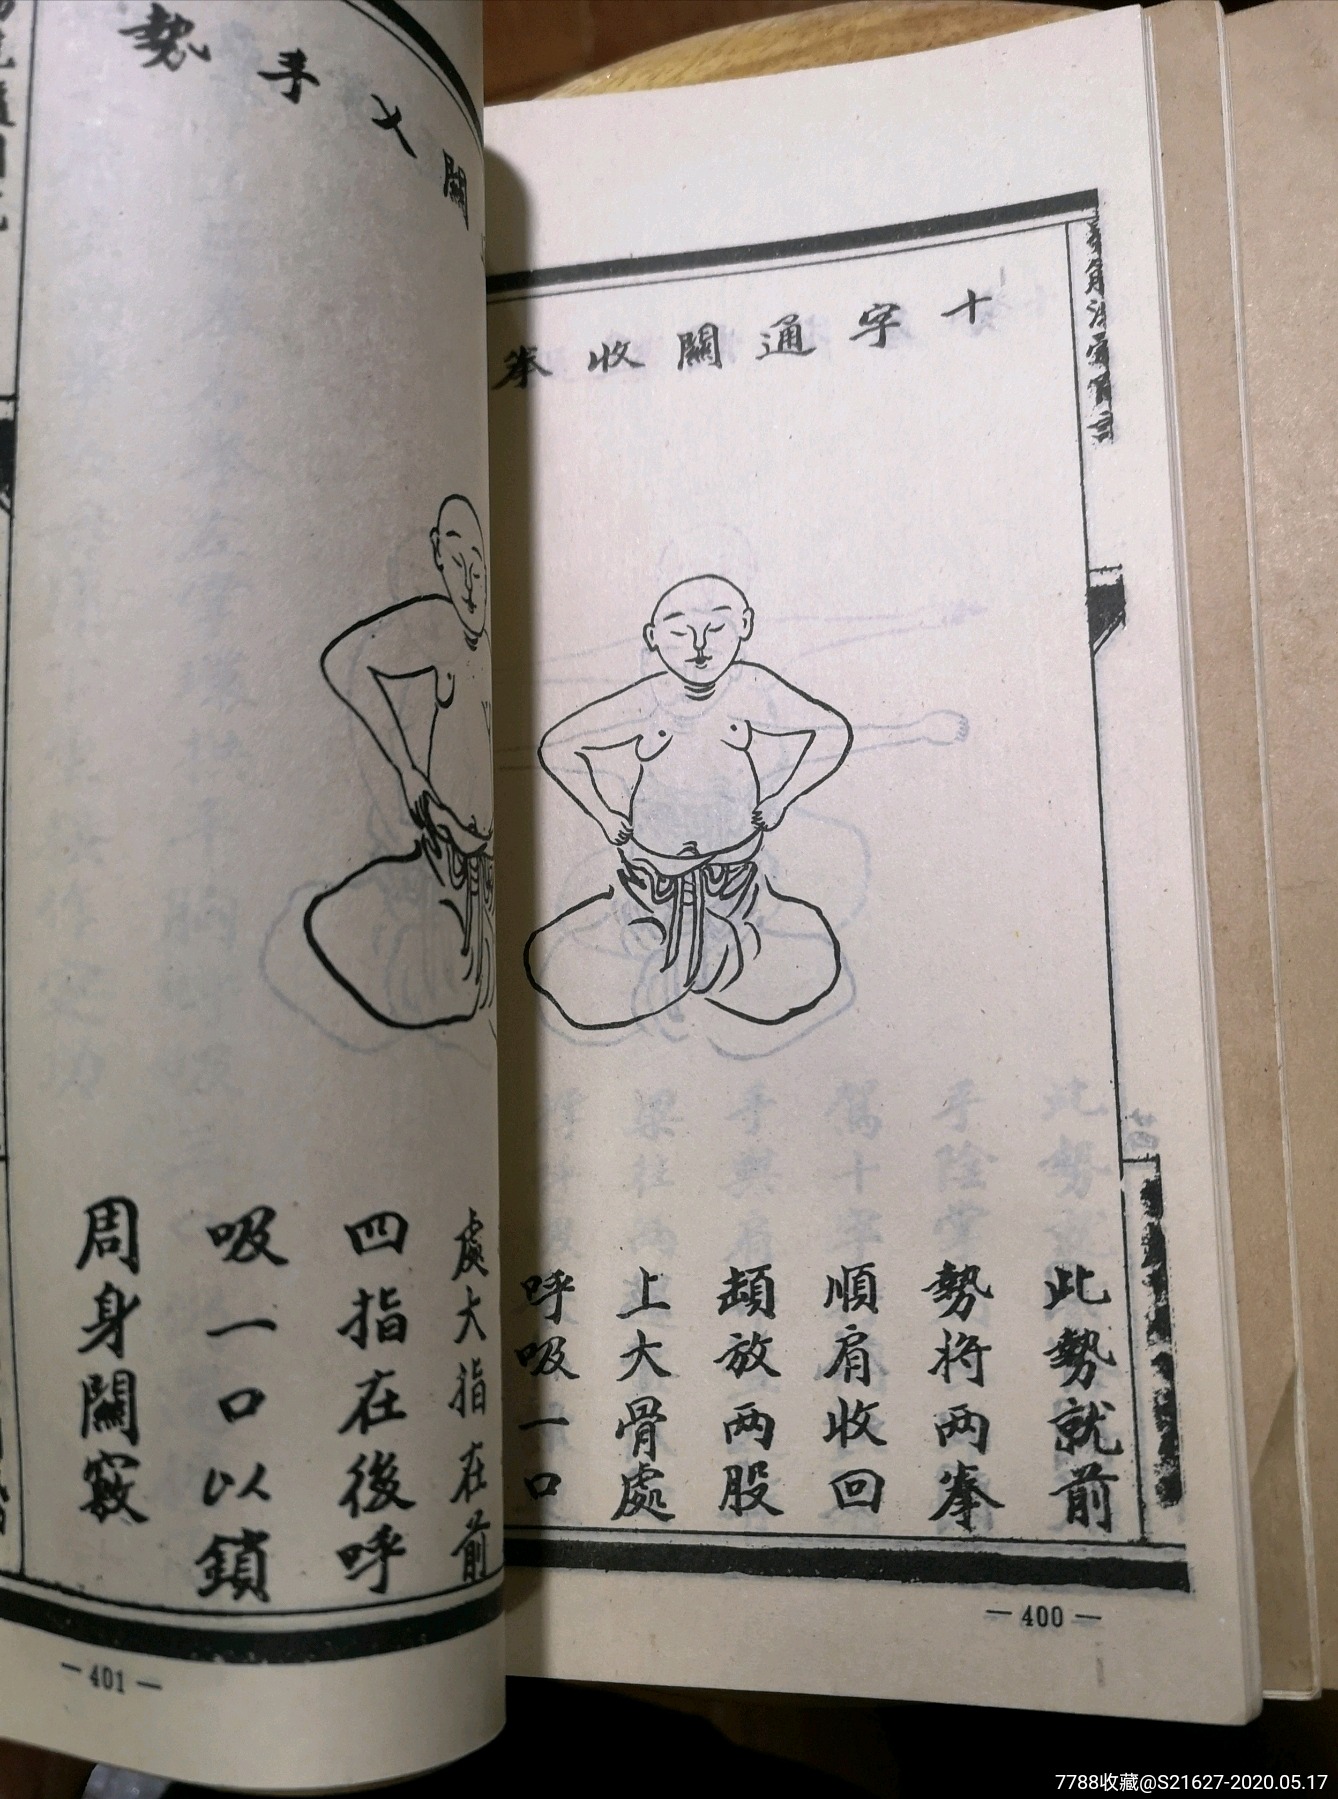 十字通關收拳
此勢就前
勢將两拳
順肩收回
頡放两股
上大骨處
呼吸一口
— 400 —
關
手勢
處大指在前
四指在後呼
吸一口以鎖
周身關竅
— 401 —
7788收藏@S21627-2020.05.17